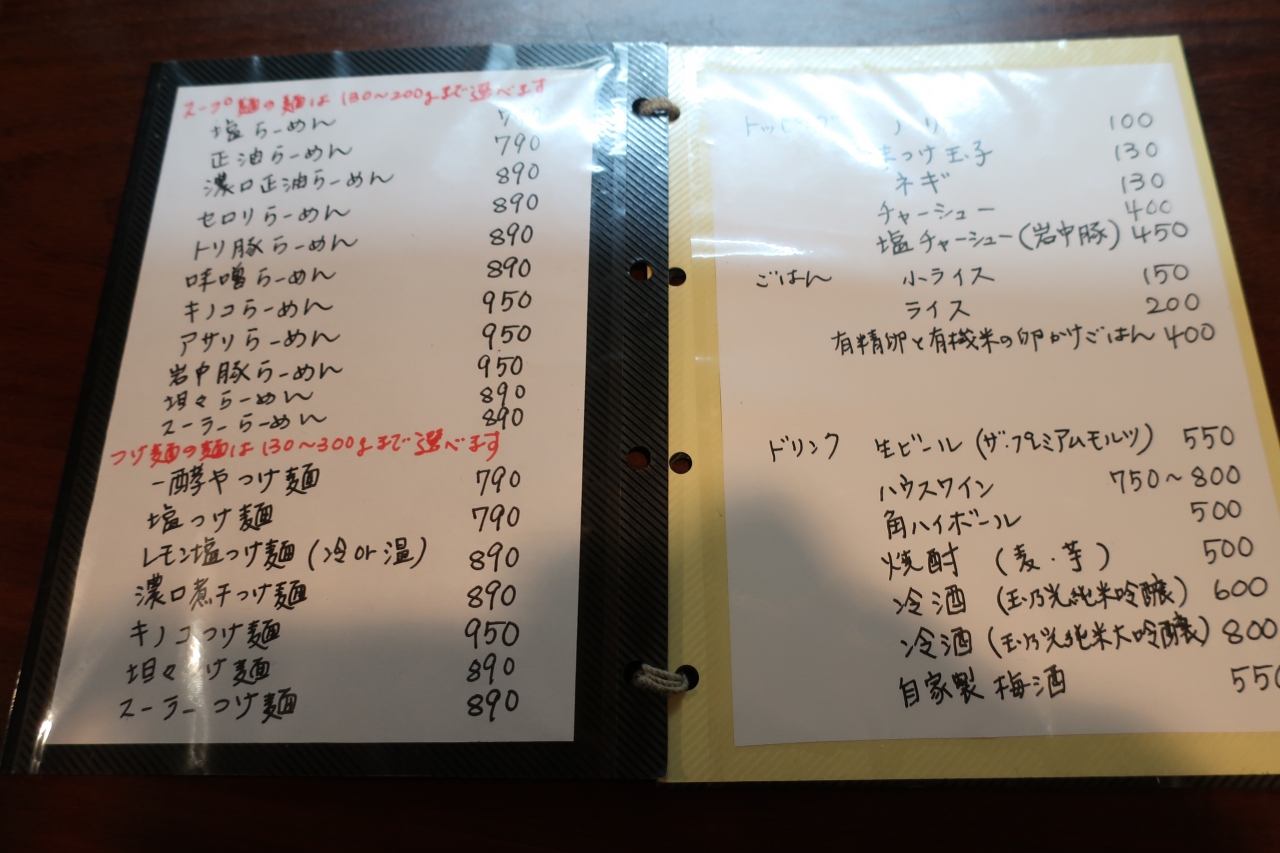 スープ麺の麺は130〜200gまで選べます
塩らーめん
正油らーめん 790
濃口正油らーめん 890
セロリらーめん 890
トリ豚らーめん 890
味噌らーめん 890
キノコらーめん 950
アサリらーめん 950
岩中豚らーめん 950
坦々らーめん 890
スーラーらーめん 890
つけ麺の麺は130〜300gまで選べます
一酵やつけ麺 790
塩つけ麺 790
レモン塩つけ麺(冷or温) 890
濃口煮干つけ麺 890
キノコつけ麺 950
坦々つけ麺 890
スーラーつけ麺 890
トッピング ノリ 100
味つけ玉子 130
ネギ 130
チャーシュー 400
塩チャーシュー(岩中豚) 450
ごはん 小ライス 150
ライス 200
有精卵と有機米の卵かけごはん 400
ドリンク 生ビール(ザ・プレミアムモルツ) 550
ハウスワイン 750〜800
角ハイボール 500
焼酎 (麦・芋) 500
冷酒 (玉乃光純米吟醸) 600
冷酒 (玉乃光純米大吟醸) 800
自家製梅酒 550